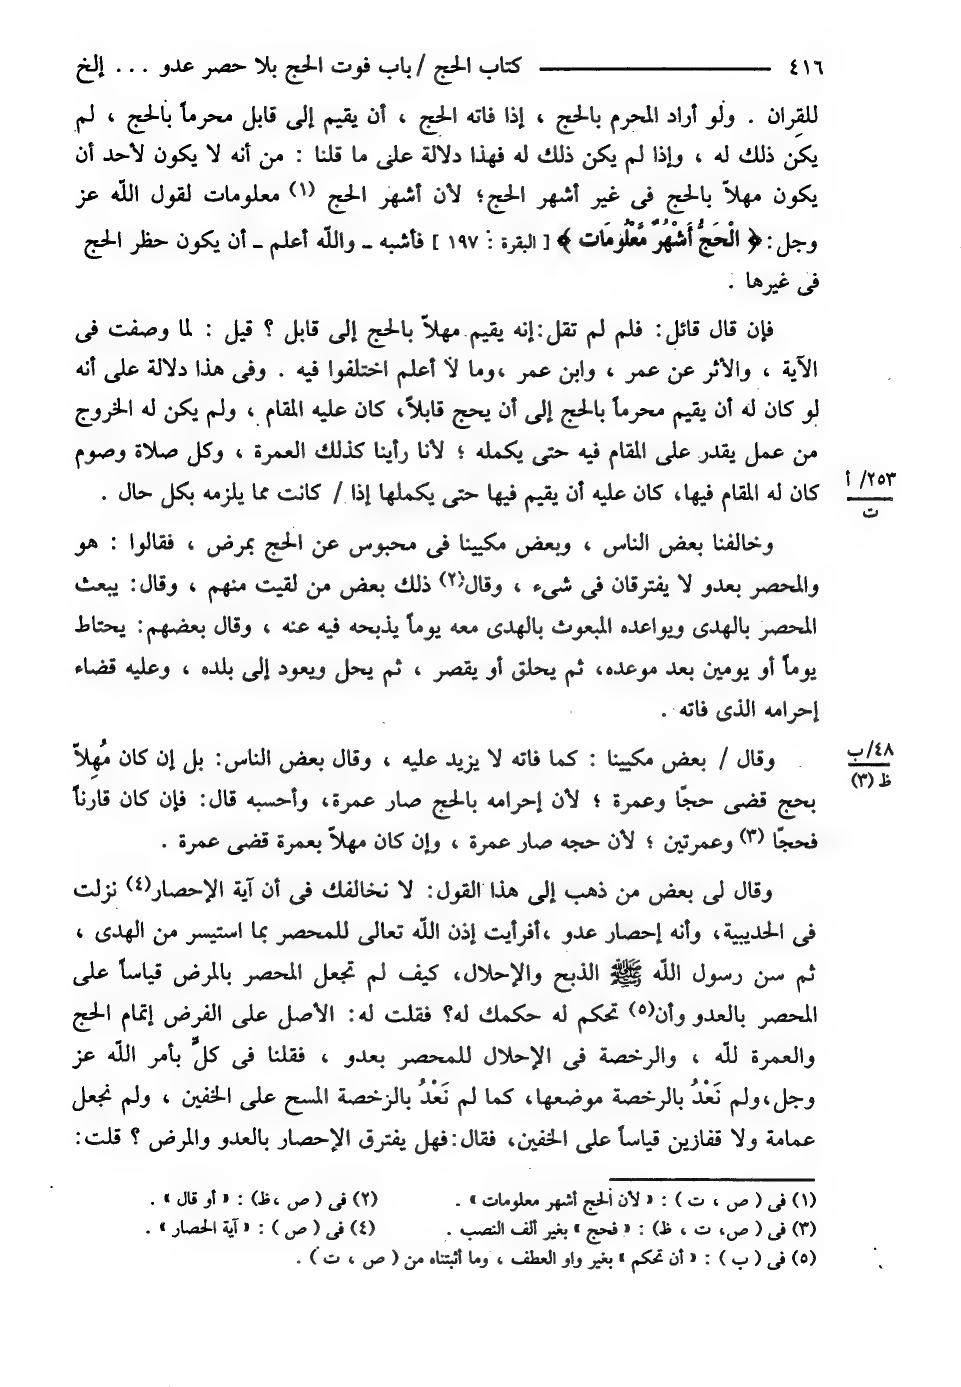 ٤١٦ ــــــــــــــــ كتاب الحج / باب فوت الحج بلا حصر عدو ... إلخ
للقِران . ولو أراد المحرم بالحج ، إذا فاته الحج ، أن يقيم إلى قابل محرماً بالحج ، لم
يكن ذلك له ، وإذا لم يكن ذلك له فهذا دلالة على ما قلنا : من أنه لا يكون لأحد أن
يكون مهلاً بالحج فى غير أشهر الحج؛ لأن أشهر الحج (١) معلومات لقول الله عز
وجل: ﴿ الْحَجُّ أَشْهُرٌ مَّعْلُومَات ﴾ [ البقرة : ١٩٧ ] فأشبه ـ والله أعلم ـ أن يكون حظر الحج
فى غيرها .
فإن قال قائل: فلم لم تقل:إنه يقيم مهلاً بالحج إلى قابل ؟ قيل : لما وصفت فى
الآية ، والأثر عن عمر ، وابن عمر ،وما لا أعلم اختلفوا فيه . وفى هذا دلالة على أنه
لو كان له أن يقيم محرماً بالحج إلى أن يحج قابلاً، كان عليه المقام ، ولم يكن له الخروج
من عمل يقدر على المقام فيه حتى يكمله ؛ لأنا رأينا كذلك العمرة ، وكل صلاة وصوم
كان له المقام فيها، كان عليه أن يقيم فيها حتى يكملها إذا / كانت مما يلزمه بكل حال .
٢٥٣/ أ
ت
وخالفنا بعض الناس ، وبعض مكيينا فى محبوس عن الحج بمرض ، فقالوا : هو
والمحصر بعدو لا يفترقان فى شىء ، وقال(٢) ذلك بعض من لقيت منهم ، وقال: يبعث
المحصر بالهدى ويواعده المبعوث بالهدى معه يوماً يذبحه فيه عنه ، وقال بعضهم: يحتاط
يوماً أو يومين بعد موعده، ثم يحلق أو يقصر ، ثم يحل ويعود إلى بلده ، وعليه قضاء
إحرامه الذى فاته .
وقال / بعض مكيينا : كما فاته لا يزيد عليه ، وقال بعض الناس: بل إن كان مُهِلاً
٤٨/ب
ظ (٣)
بحج قضى حجّا وعمرة ؛ لأن إحرامه بالحج صار عمرة، وأحسبه قال: فإن كان قارناً
فحجّا (٣) وعمرتين ؛ لأن حجه صار عمرة ، وإن كان مهلاً بعمرة قضى عمرة .
وقال لى بعض من ذهب إلى هذا القول: لا نخالفك فى أن آية الإحصار(٤) نزلت
فى الحديبية، وأنه إحصار عدو ،أفرأيت إذن الله تعالى للمحصر بما استيسر من الهدى ،
ثم سن رسول الله ﷺ الذبح والإحلال، كيف لم تجعل المحصر بالمرض قياساً على
المحصر بالعدو وأن(٥) تحكم له حكمك له؟ فقلت له: الأصل على الفرض إتمام الحج
والعمرة لله ، والرخصة فى الإحلال للمحصر بعدو ، فقلنا فى كلٍّ بأمر الله عز
وجل،ولم نَعْدُ بالرخصة موضعها، كما لم نَعْدُ بالرخصة المسح على الخفين ، ولم نجعل
عمامة ولا قفازين قياساً على الخفين، فقال:فهل يفترق الإحصار بالعدو والمرض ؟ قلت:
(١) فى ( ص ، ت ) : « لأن الحج أشهر معلومات » . (٢) فى ( ص ،ظ) : « أو قال » .
(٣) فى ( ص، ت ، ظ) : « فحج » بغير ألف النصب . (٤) فى ( ص ) : « آية الحصار » .
(٥) فى ( ب ) : « أن تحكم » بغير واو العطف ، وما أثبتناه من ( ص ، ت ) .